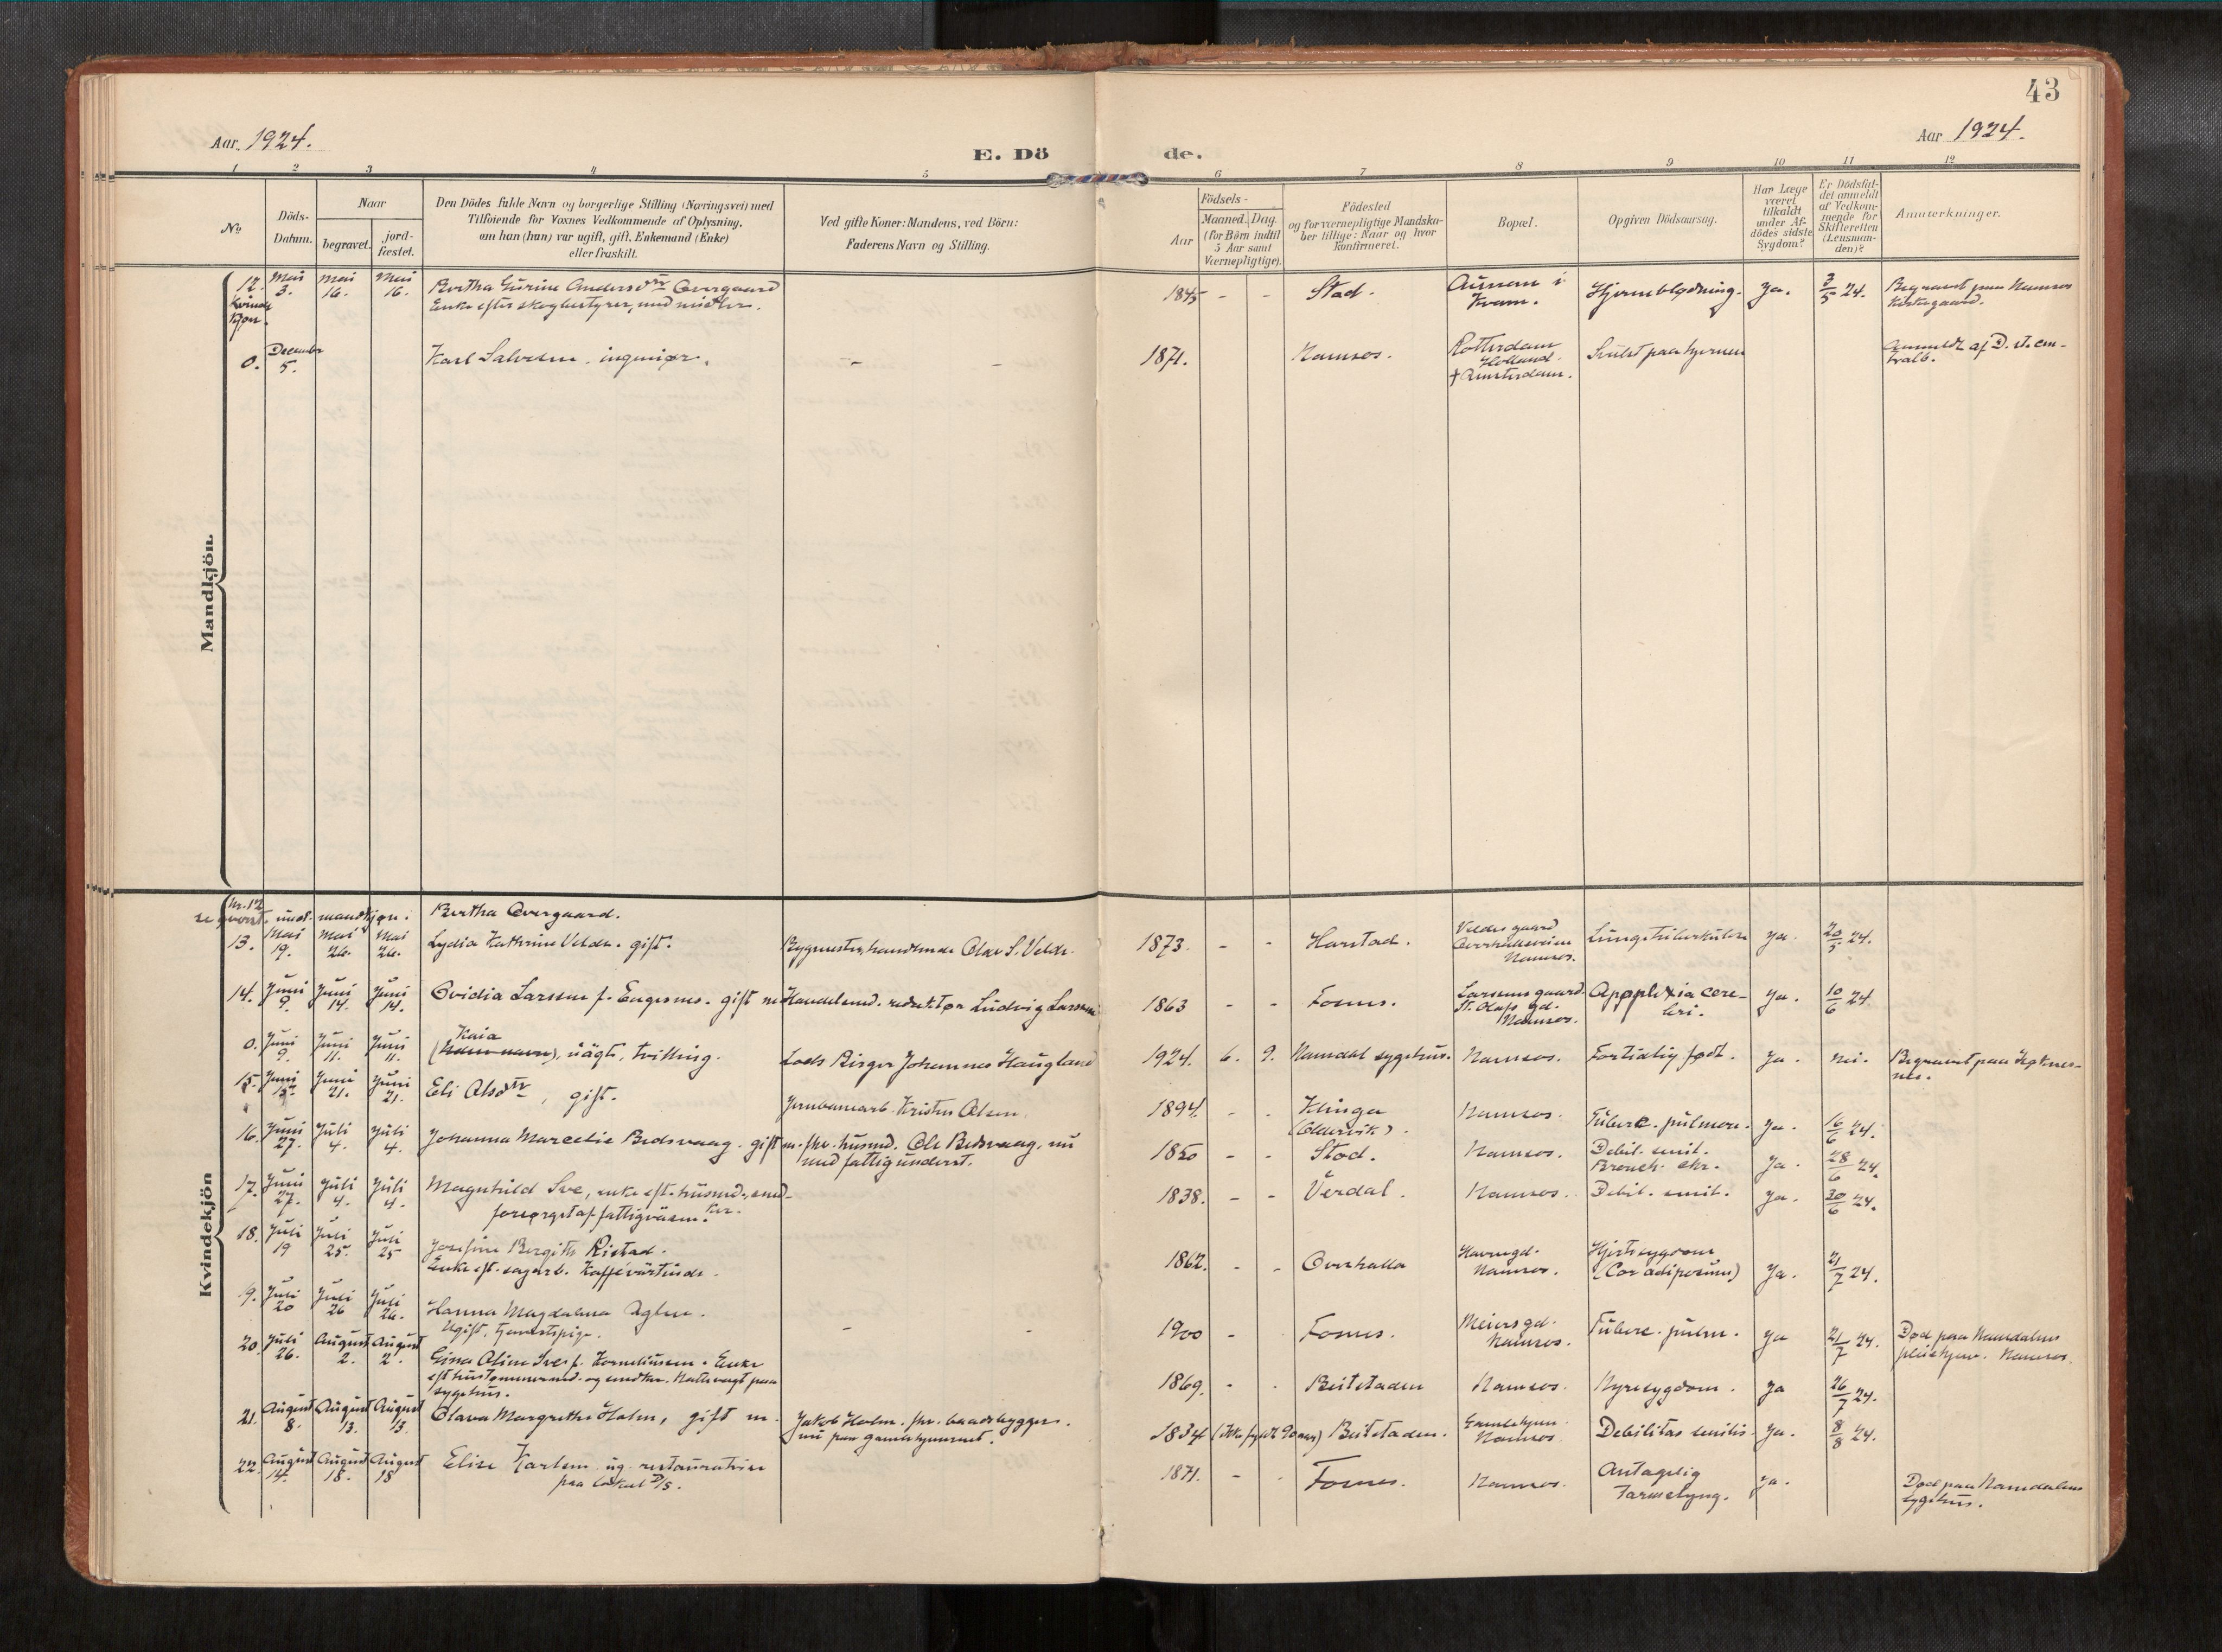 43
Aar 1924.
Aar 1924.
E. Dö de.
1 2 3 4 5 6 7 8 9 10 11 12
No
Döds-Datum.
Naar
begravet.
jord-fæstet.
Den Dödes fulde Navn og borgerlige Stilling (Næringsvei) med
Tilföiende for Voxnes Vedkommende af Oplysning,
om han (hun) var ugift, gift, Enkemand (Enke)
eller fraskilt.
Ved gifte Koner: Mandens, ved Börn:
Faderens Navn og Stilling.
Födsels-
Aar
Maaned. Dag.
(for Börn indtil
5 Aar samt
Værnepligtige).
Födested
og for værnepligtige Mandska-
ber tillige: Naar og hvor
konfirmeret.
Bopæl.
Opgiven Dödsaarsag.
Har Læge
været
tilkaldt
under Af-
dödes sidste
Sygdom?
Er Dödsfal-
det anmeldt
af Vedkom-
mende for
Skifteretten
(Lensman-
den)?
Anmærkninger.
Mandkjön.
12. Kvindekjøn. Mai 3. Mai 16. Mai 16. Bertha Gurine Andersdtr Overgaard
Enke efter skogbestyrer, med midler.
1845 - - Stad. Aunem i Kvam. Hjerneblødning. Ja. 3/5 24. Begravet paa Namsos Kirkegaard.
0. December 5. Karl Salvesen ingeniør. - - 1871. Namsos. Rotterdam Holland. † Amsterdam. Svulst paa hjernen Anmeldt af D. st. centralb.
Kvindekjön
Nr. 12 se øverst und. mandkjøn. Bertha Overgaard.
13. Mai 19. Mai 26. Mai 26. Lydia Kathrine Velde. gift. Bygmester, handlende Olav S. Velde. 1873. - - Harstad. Veldes gaard Overhallsveien Namsos. Lungetuberkulose Ja. 20/5 24.
14. Juni 9. Juni 14. Juni 14. Ovidia Larssen f. Engesnes. gift m. Handelsmd. redaktør Ludvig Larssen 1863 - - Fosnes. Larssens gaard. St. Olafs gd. Namsos. Apoplexia cerebri. Ja. 10/6 24.
0. Juni 9. Juni 11. Juni 11. Kaia (uden navn), uägte, tvilling. Lods Birger Johannes Haugland 1924. 6. 9. Namdal sygehus. Namsos. Fortidlig født. Ja. nei. Begravet paa
15. Juni 15. Juni 21. Juni 21. Eli Olsdtr, gift. Jernbanearb. Kristen Olsen. 1894. - - Klinga (Aldervik). Namsos. Tuberc. pulmon. Ja. 16/6 24.
16. Juni 27. Juli 4. Juli 4. Johanna Marcelie Bedsvaag. gift m. fhv. husmd. Ole Bedsvaag, nu
med fattigunderst. 1850 - - Stod. Namsos. Debil. senil. Bronch. chr. Ja. 28/6 24.
17. Juni 27. Juli 4. Juli 4. Magnhild Sve, enke eft. husmd., smed-
forsørget af fattigväsen. 1838. - - Verdal. Namsos. Debil. senil. Ja. 30/6 24.
18. Juli 19 Juli 25. Juli 25 Josefine Bergitte Ristad.
Enke eft. sagarb. Kaffevärtinde. 1862. - - Overhalla Havnegd. Namsos. Hjertesygdom (Cor adiposum) Ja. 21/7 24.
9. Juli 20 Juli 26 Juli 26. Hanna Magdalena Aglen.
Ugift, tjenestepige. - - 1900 - Fosnes. Meiersgd. Namsos. Tuberc. pulm. Ja 21/7 24. Død paa Namdalens pleiehjem. Namsos.
20. Juli 26. August 2. August 2. Gina Oline Sve f. Korneliussen. Enke
eft. hustømmermd. og snedker. Nattevagt paa
sygehus. 1869. - - Beitstaden Namsos. Nyresygdom. Ja 26/7 24.
21. August 8. August 13. August 13. Olava Margrethe Holm, gift m. Jakob Holm. fhv. baadbygger.
nu paa gamlehjemmet. 1834 (ikke fyldt 90 aar) Beitstaden. Gamlehjem. Namsos. Debilitas senilis. Ja. 8/8 24.
22. August 14. August 18. August 18 Elise Karlsen ug. restauratrise
paa lokal D/S. 1871. - - Fosnes. Namsos. Antagelig Tarmslyng. Ja. Død paa Namdalens sygehus.